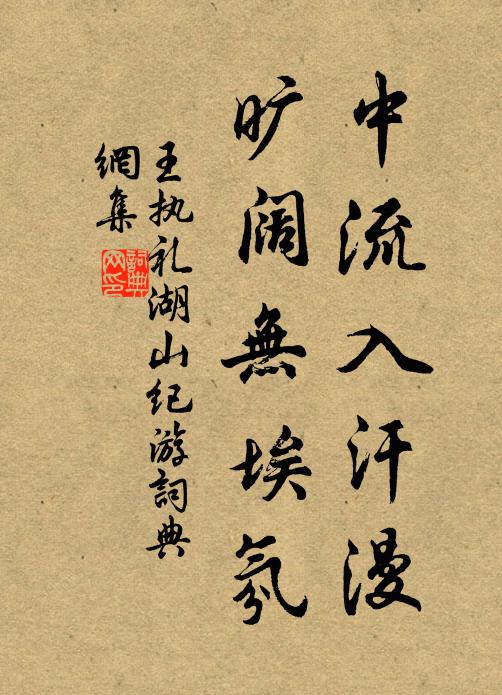 中流入汗漫
旷阔無埃氛
王执礼湖山纪游詞典
網集
詞典
网印